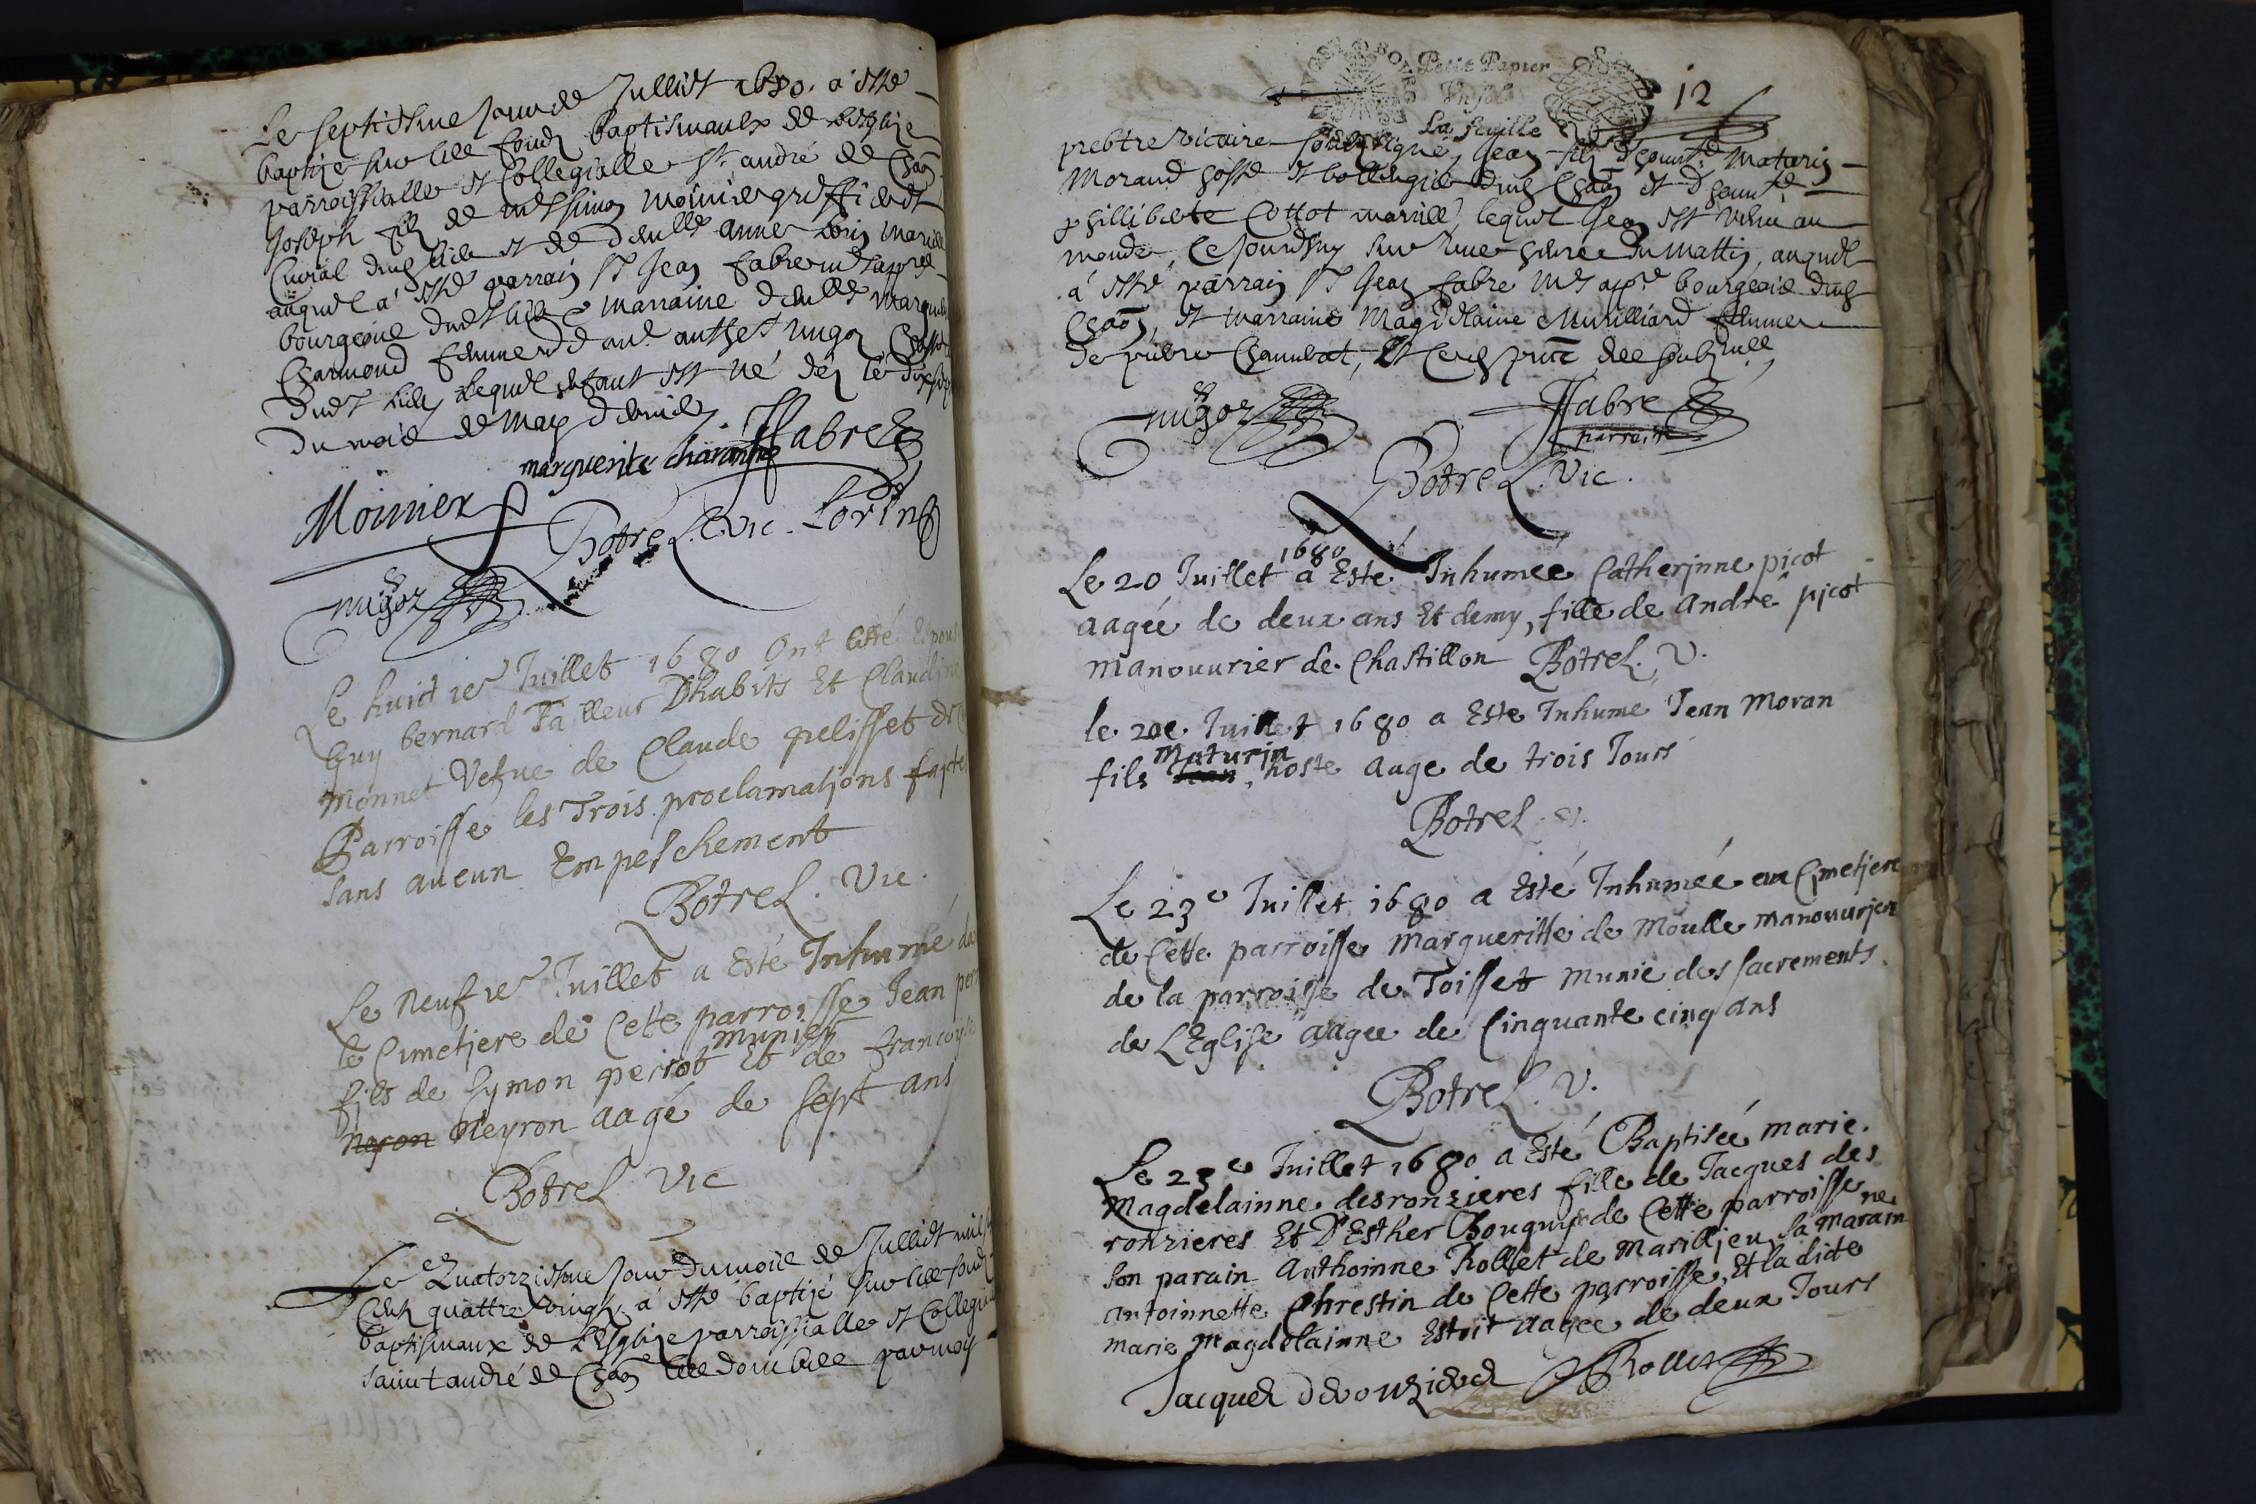 Le septiesme Jour de Julliet 1680. a esté
baptizé sur les fondz baptismaulx de lesglize
parroissialle et Collegialle St. andré de Chaon
Joseph filz de me simon moinier greffier et
Curial dud lieu et de delle anne Lorin mariés
auquel a esté parrain Sr Jean fabre md appre
bourgeois dud lieu & marraine delle marguerite
Charmond femme de
dud lieu, lequel enfant est né dez le
du mois de May dernier
marguerite charmond Fabre
Moinier Botrel. Vic. Lorin
nugoz
Le huict ie Juillet 1680 Ont Esté Espous
Guy bernard Tailleur Dhabits Et Claudine
monnet Vefue de Claude pelisset de
Parroisse les Trois proclamations faictes
sans aucun Empeschement
Botrel. Vic.
Le neuf ie Juillet a Esté Inhumé da
le Cimetiere de Cette parroisse Jean per
fils de Symon perrot munier Et de francoyse
neyron Neyron aagé de sept ans
Botrel Vic
Le Quatorziesme Jour du mois de Julliet mil
Cent quattre vingtz a esté baptizé sur les fondz
baptismaux de L'Esglize parroissialle et Collegialle
saint andré de Chaon les dombes par moy
Petit Papier
Un sol
La feuille
12
prebtre vicaire soubsigné, Jean filz d'honeste Maturin
Morand hoste et bollengier dud Chaon et d'honeste
phillibete Cottot mariés, lequel Jean est venu au
monde, Ce Jourdhuy sur Une heure du mattin, auquel
a esté parrain Sr Jean fabre md appre bourgeois dud
Chaon, et marraine Magdelaine Murilliard femme
de pierre Chambat, Et Ceux pnts des soubznés
nugoz Fabre
parrain
Botrel. Vic.
Le 20 Juillet 1680 a Esté Inhumée Catherjnne picot
aagée de deux ans Et demy, fille de André picot
manouurier de Chastillon Botrel. V.
le 20e Juillet 1680 a Este Inhumé Jean Moran
fils Jean Maturin, hoste aage de trois Jours
Botrel. V.
Le 23e Juillet 1680 a Esté Inhumée au Cimetiere
de Cette parroisse Margueritte de Moulle manouurjere
de la parroisse de Toisset munie des sacrements
de LEglise aagee de Cinquante cinq ans
Botrel. V.
Le 23e Juillet 1680 a Esté Baptisée marie
Magdelainne desronzieres fille de Jacques des
ronzieres Et D'Esther Bouguyr de Cette parroisse
son parain Anthoinne Rollet de Marilljeu sa maraine
antoinnette Chrestin de Cette parroisse, Et la dite
marie Magdelainne Estoit aagee de deux Jours
Jacques deronzieres Rollet